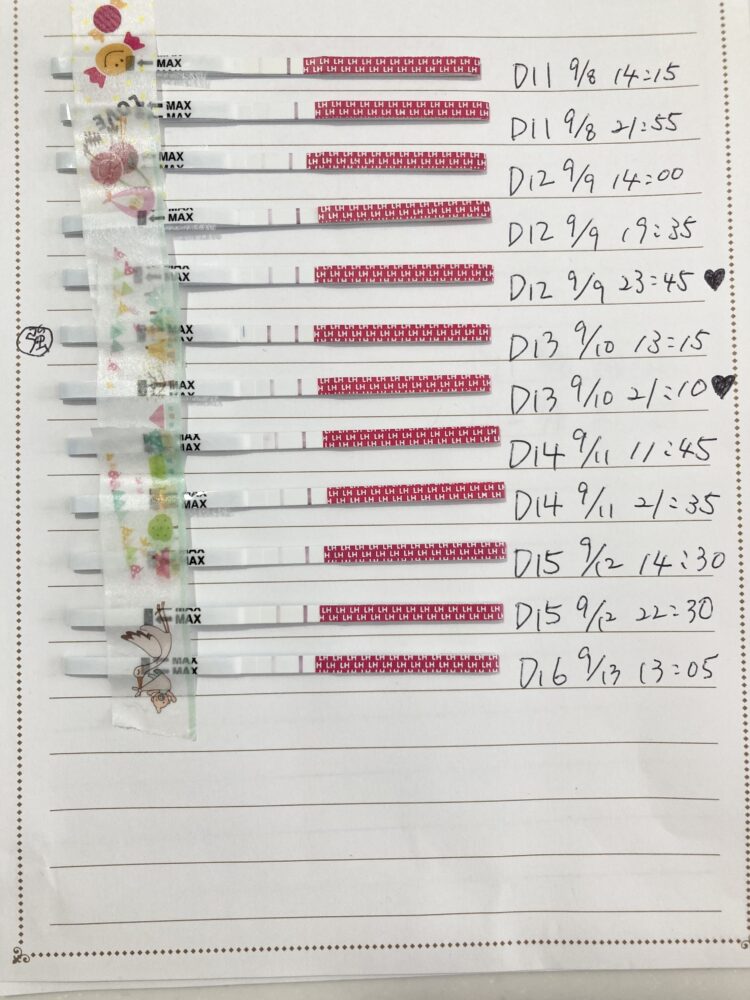 MAX D11 9/8 14:15
MAX D11 9/8 21:55
MAX D12 9/9 14:00
MAX D12 9/9 19:35
MAX D12 9/9 23:45 ♥
強 MAX D13 9/10 13:15
MAX D13 9/10 21:10 ♥
MAX D14 9/11 11:45
MAX D14 9/11 21:35
MAX D15 9/12 14:30
MAX D15 9/12 22:30
MAX D16 9/13 13:05
LOVE
LH LH LH LH LH LH LH LH LH LH